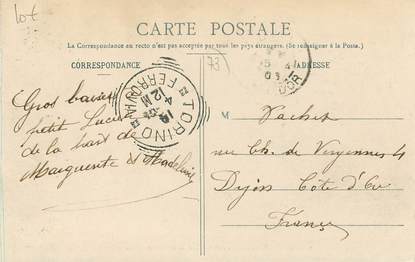 lot
CARTE POSTALE
La Correspondance au recto n'est pas acceptée par tous les pays étrangers. (Se renseigner à la Poste.)
CORRESPONDANCE
ADRESSE
73
TORINO
FERROVIA
12 M
Gros baisers
petit Lucien
de la part de
Marguerite et Madeleine
M Vachet
rue Ch. de Vergennes 4
Dijon Côte d'Or
France